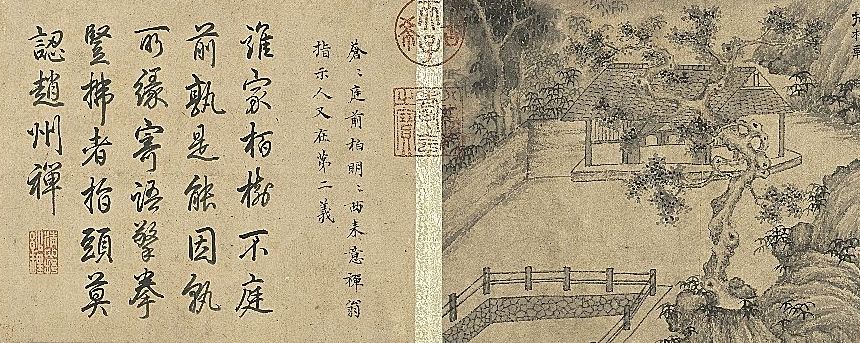 蒼〻庭前柏明〻西来意禪翁
指示人又在第二義
誰家栢樹不庭
前孰是能因孰
所緣寄語擎拳
豎拂者指頭莫
認趙州禪